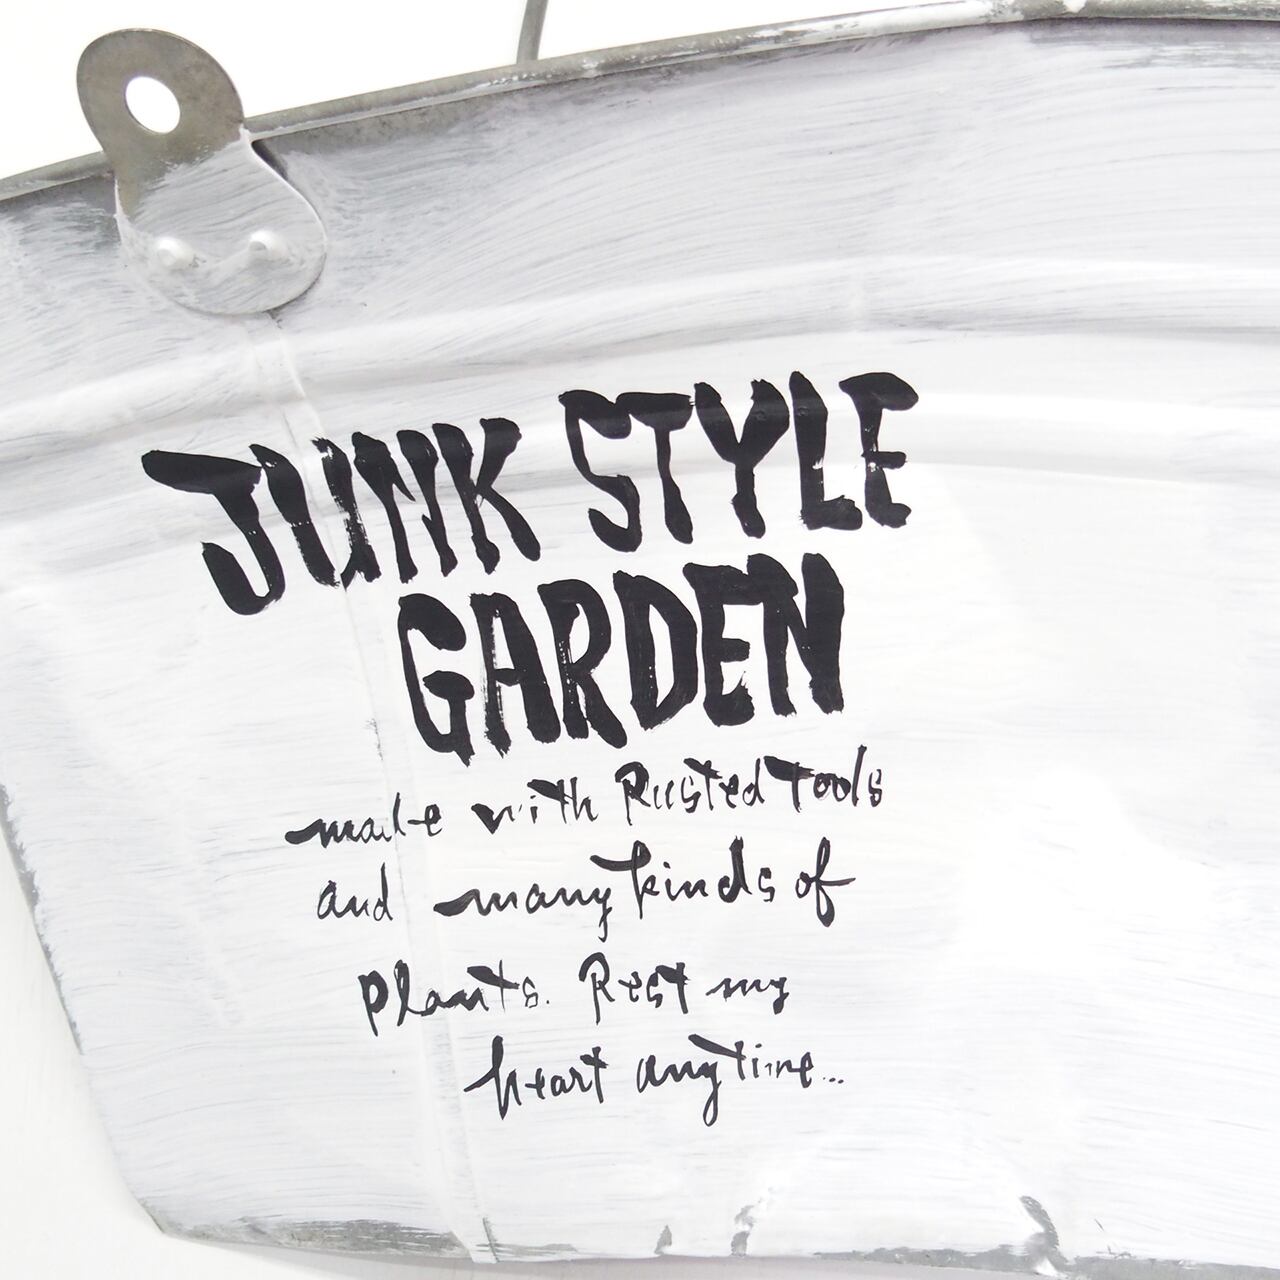 JUNK STYLE
GARDEN
made with Rusted Tools
and many kinds of
plants. Rest my
heart anytime...